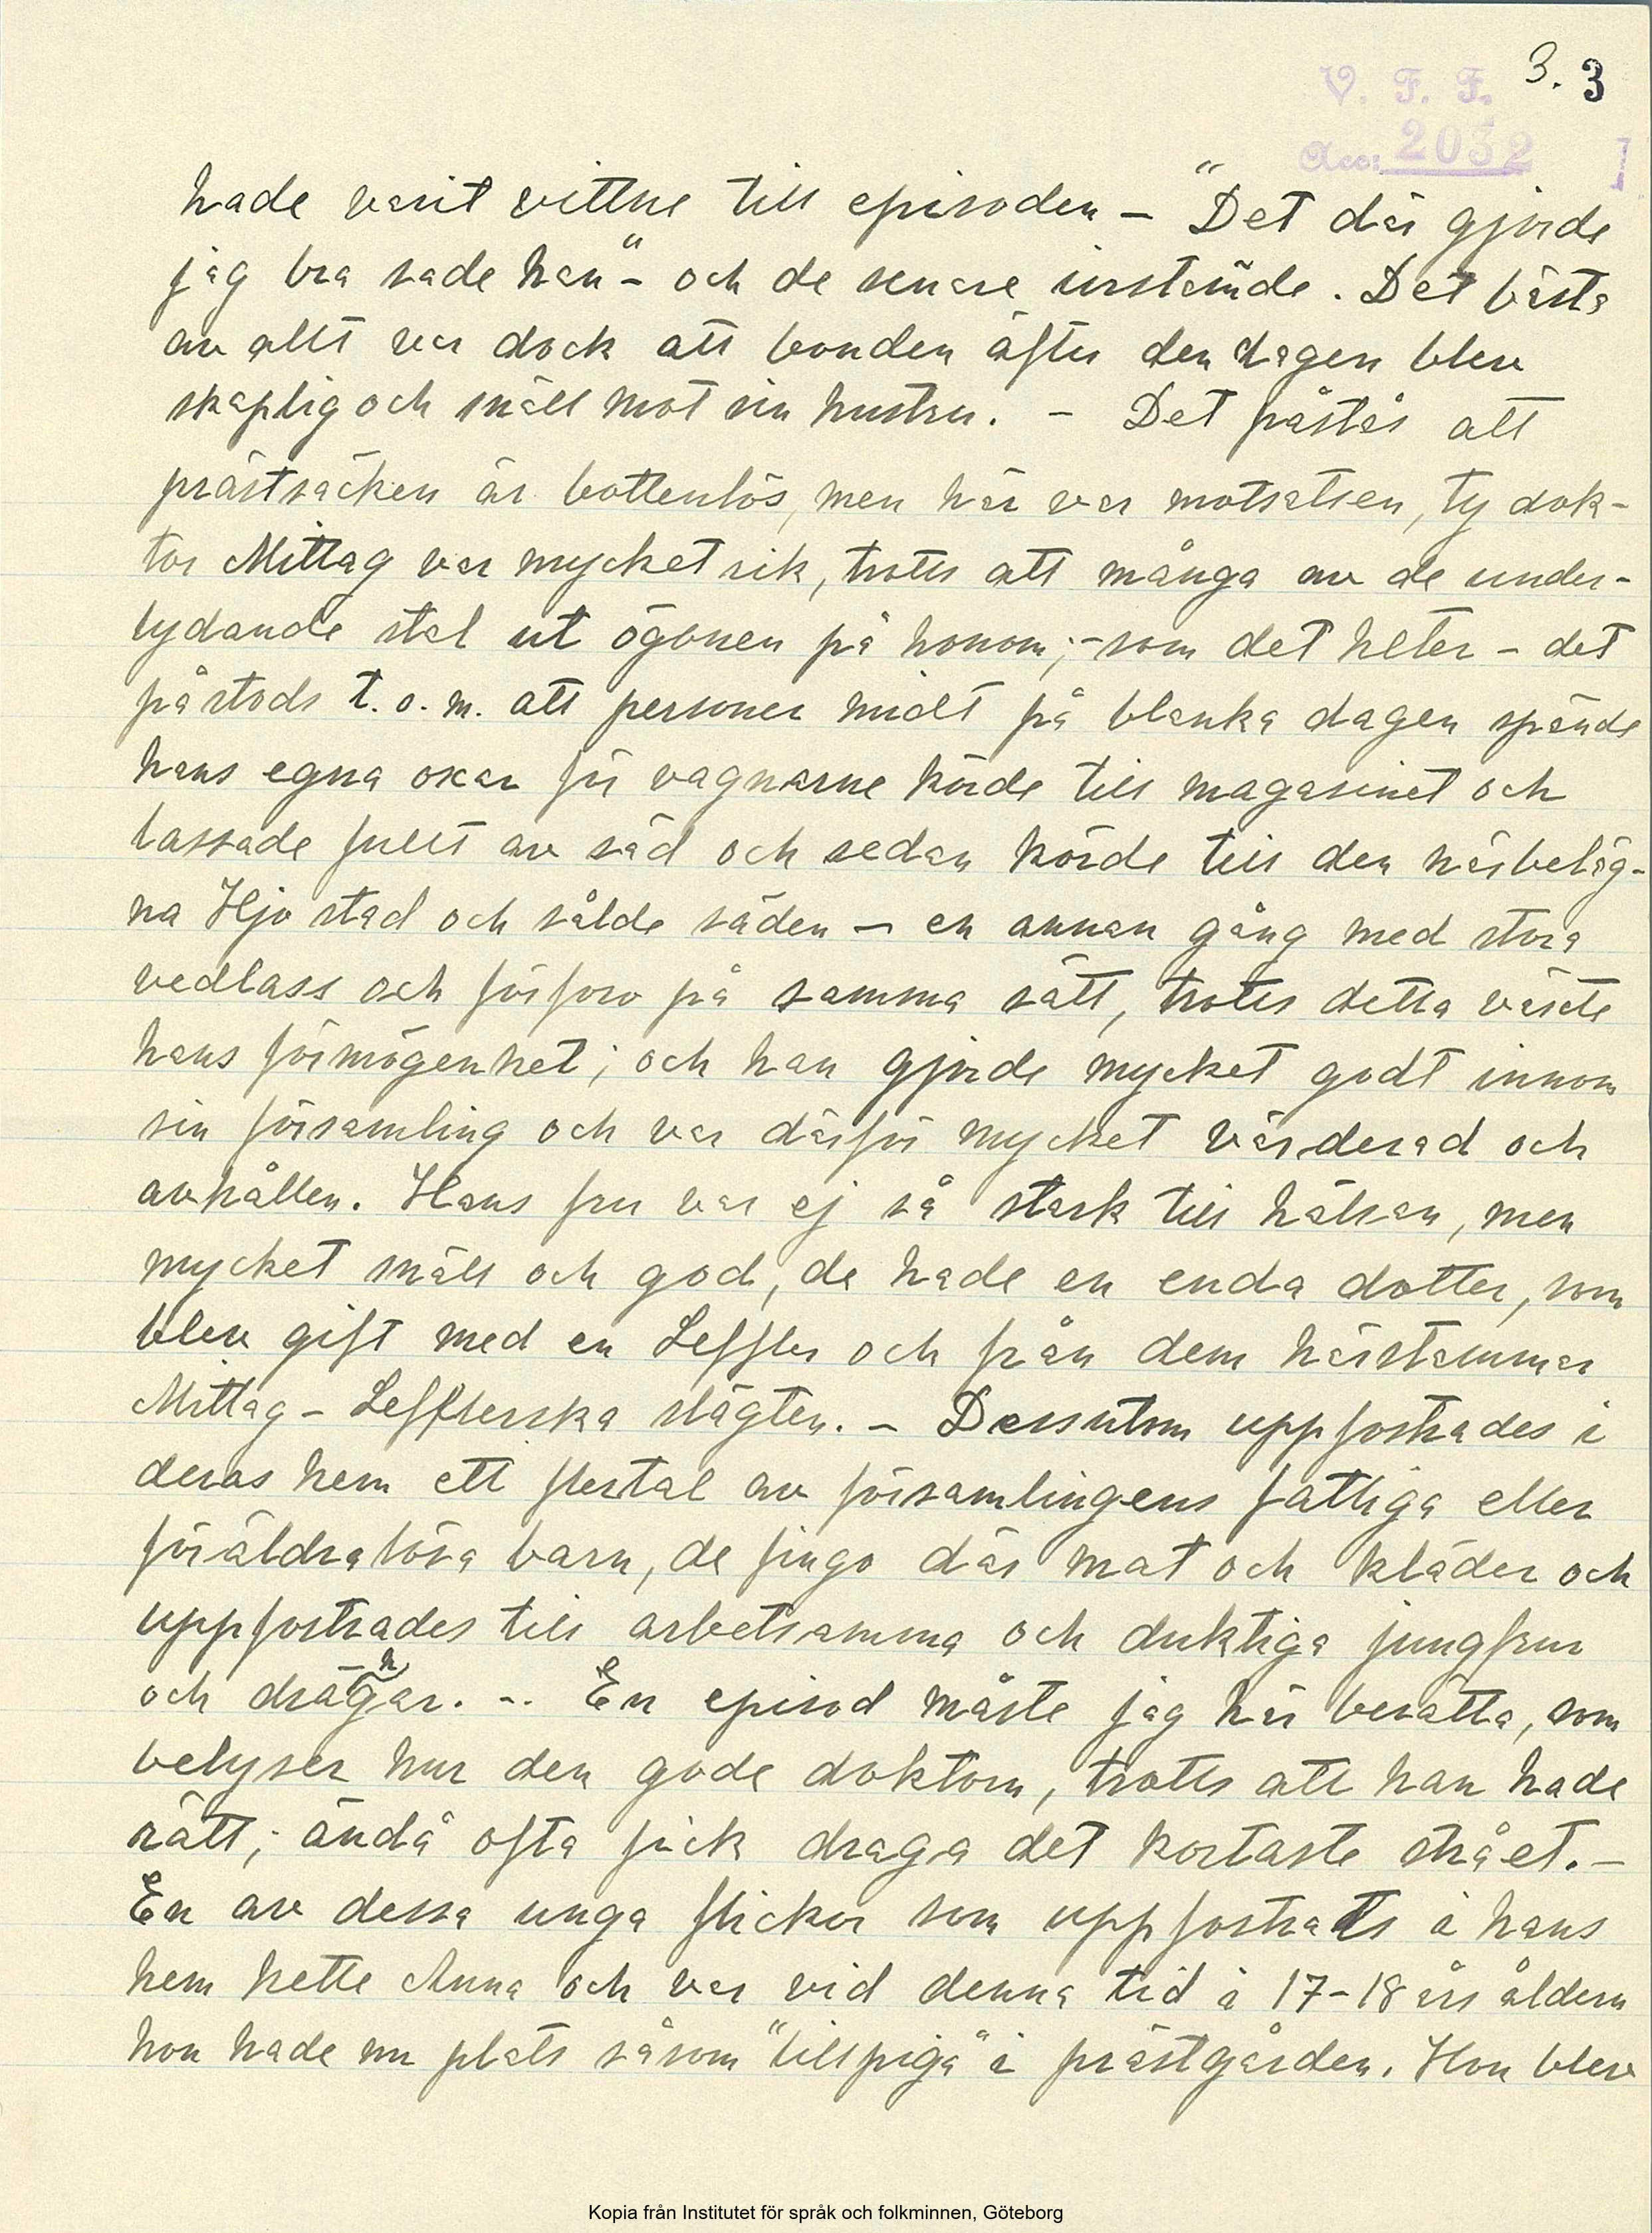 3. 3
V. F. F.
Acc: 2032
hade varit vittne till episoden — "Det där gjorde
jag bra sade han" – och de senare instämde. Det bästa
av allt var dock att bonden äfter den dagen blev
skaplig och snäll mot sin hustru. – Det påstås att
prästsäcken är bottenlös, men här var motsatsen, ty dok-
tor Mittag var mycket rik, trotts att många av de under-
lydande stal ut ögonen på honom; – som det heter – det
påstods t.o.m. att personer midt på blanka dagen spände
hans egna oxar för vagnarne körde till magasinet och
lassade fullt av säd och sedan körde till den närbeläg-
na Hjo stad och sålde säden — en annan gång med stora
vedlass och förforo på samma sätt, trotts detta växte
hans förmögenhet; och han gjorde mycket godt innom
sin församling och var därför mycket värderad och
avhållen. Hans fru var ej så stark till hälsan, men
mycket snäll och god, de hade en enda dotter, som
blev gift med en Leffler och från dem härstammar
Mittag – Lefflerska slägten. – Dessutom uppfostrades i
deras hem ett flertal av församlingens fattiga eller
föräldralösa barn, de fingo där mat och kläder och
uppfostrades till arbetsamma och duktiga jungfrur
och drängar. -. En episod måste jag här berätta, som
belyser hur den gode doktorn, trotts att han hade
rätt; ändå ofta fick draga det kortaste strået. –
En av dessa unga flickor som uppfostrats i hans
hem hette Anna och var vid denna tid i 17-18 års åldern
hon hade nu plats såsom "lillpiga" i prästgården. Hon blev
Kopia från Institutet för språk och folkminnen, Göteborg